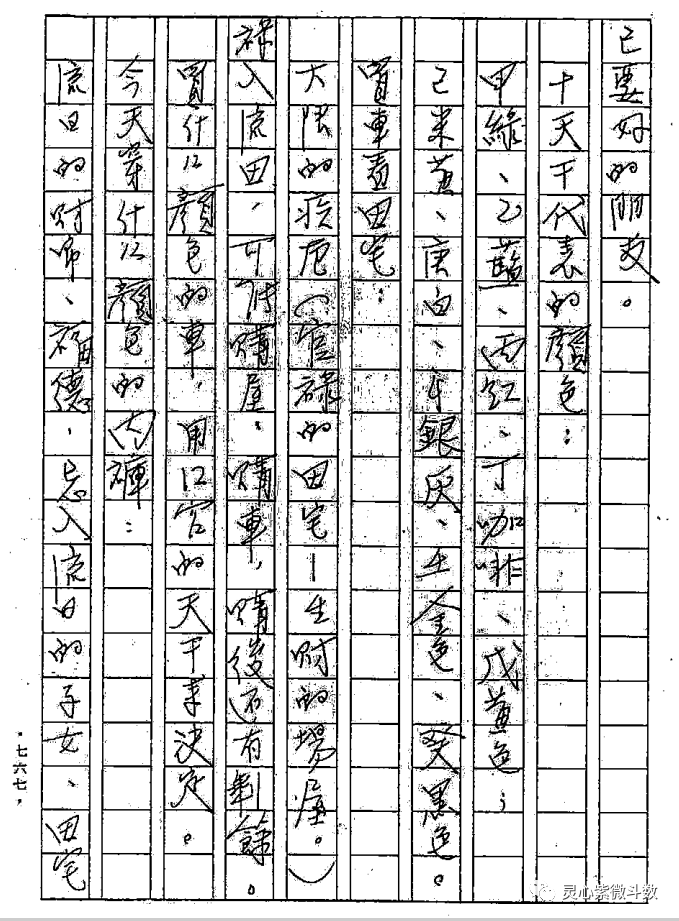 已要好的朋友。
十天干代表的顏色：
甲綠、乙藍、丙紅、丁咖啡、戊黃色；
己米黃、庚白、辛銀灰、壬金色、癸黑色。
買車看田宅：
大限的疾厄（官祿的田宅—生財的場屋。）
祿入流田，可付購屋、購車，購後还有剩餘。
買什么顏色的車，用口官的天干來決定。
今天穿什么顏色的內褲：
流日的財帛、福德，忌入流日的子女、田宅
·七六七·
灵心紫微斗数